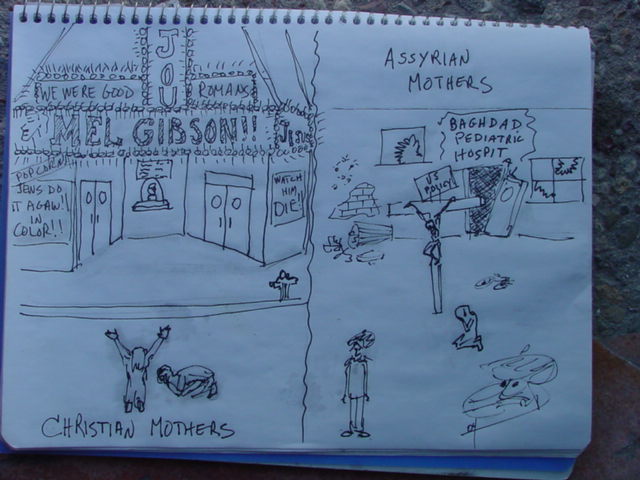 JOU
WE WERE GOOD
ROMANS
& MEL GIBSON!!
POPCORN
JEWS DO
IT AGAIN!
IN
COLOR!!
WATCH
HIM
DIE!
CHRISTIAN MOTHERS
ASSYRIAN
MOTHERS
BAGHDAD
PEDIATRIC
HOSPIT
US
POLICY